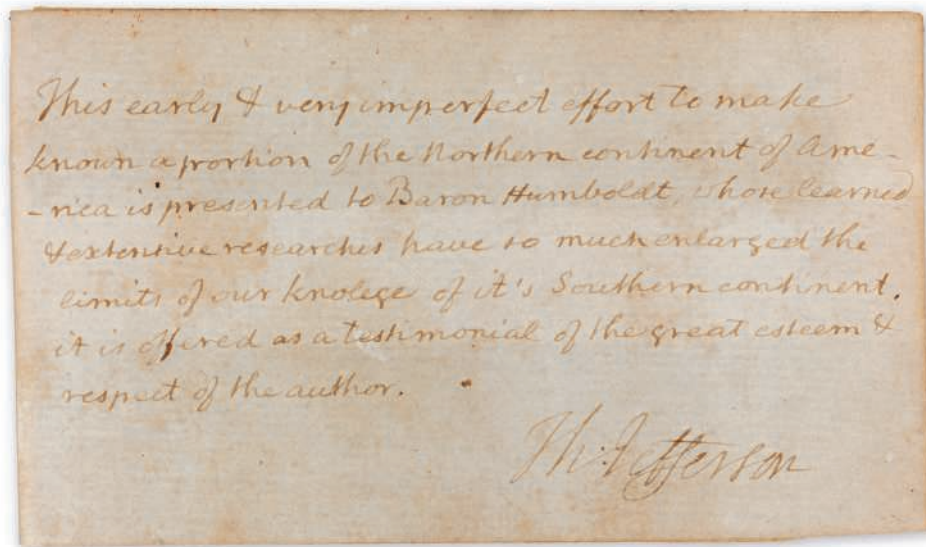 This early & very imperfect effort to make
known a portion of the Northern continent of Ame-
-rica is presented to Baron Humboldt, whose learned
& extensive researches have so much enlarged the
limits of our knolege of it's Southern continent.
it is offered as a testimonial of the great esteem &
respect of the author.
Th: Jefferson